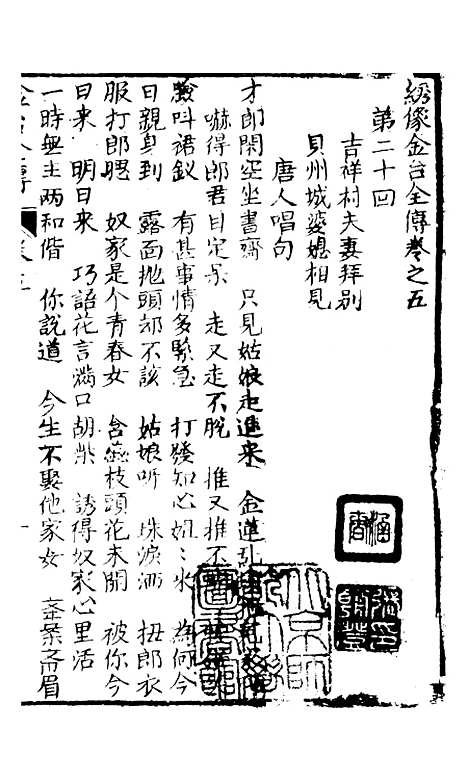 綉像金台全傳卷之五
第二十回
吉祥村夫妻拜别
貝州城婆媳相見
唐人唱句
才郎閑空坐書齋　只見姑娘走進來　金蓮
嚇得郎君目定呆　走又走不脫　推又推不
叫裙釵　有甚事情多緊急　打發知心姐〻來　為何今
日親身到　露面抛頭却不該　姑娘听　珠淚洒　扭郎衣
服打郎腮　奴家是个青春女　含蕊枝頭花未開　被你今
日來　明日來　巧語花言滿口胡柴　誘得奴家心里活
一時無主兩和偕　你說道　今生不娶他家女　齊眉